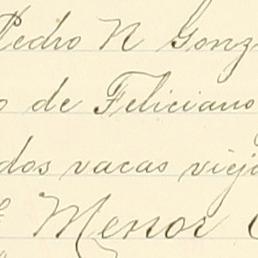 Pedro N Gonz
o de Feliciano
dos vacas viej
Mersor